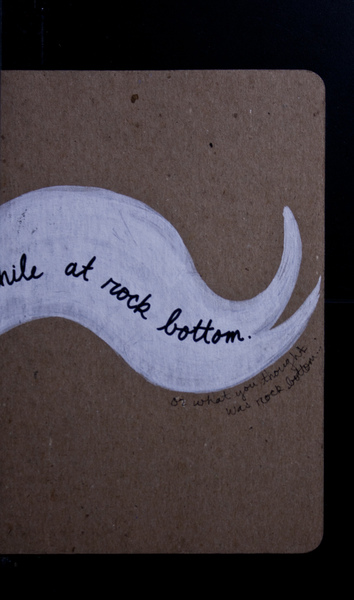 hile at rock bottom.
or what you thought
was rock bottom.